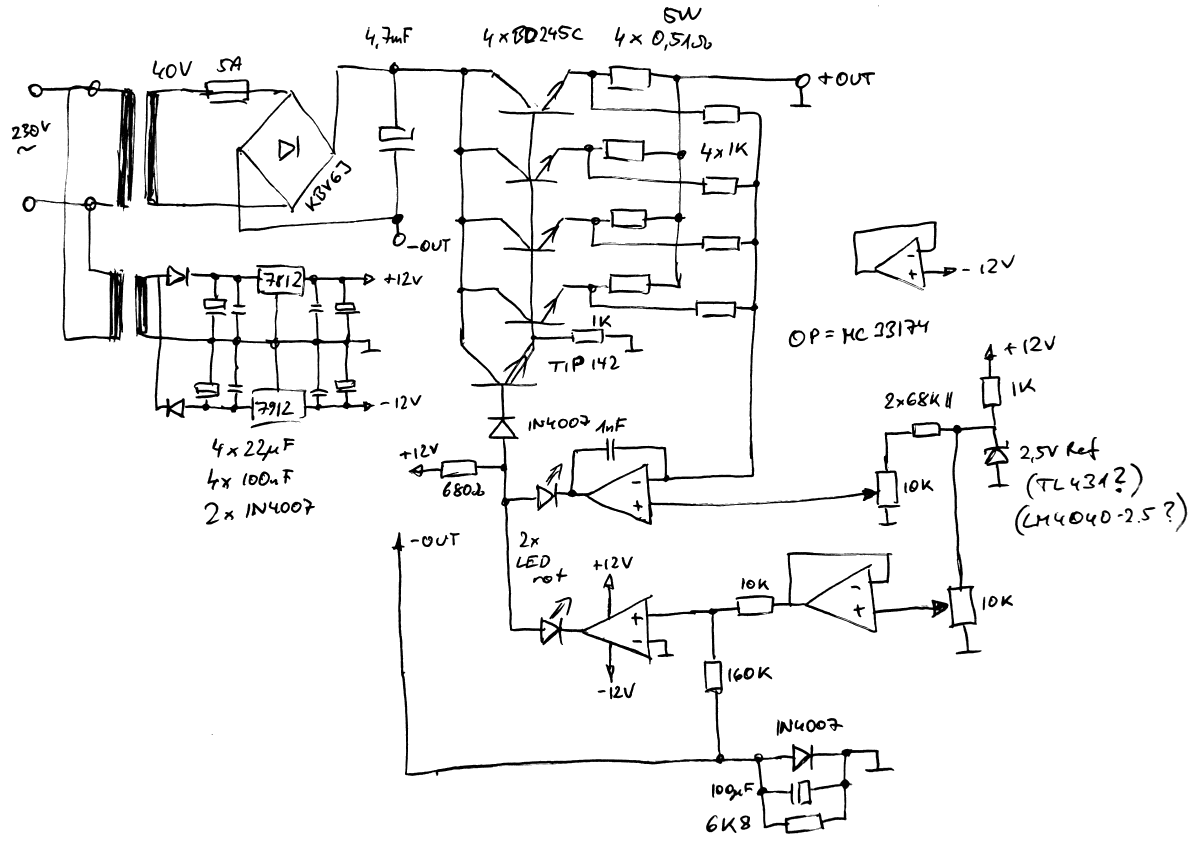 5W
4,7mF
4×BD245C
4×0,51Ω
40V
5A
+OUT
230V
~
4×1K
KBV6J
-OUT
7812
+12V
-12V
1K
OP=MC33174
TIP142
+12V
1K
7912
-12V
2×68K||
4×22µF
1N4007
1nF
2,5V Ref
+12V
4×100nF
680Ω
10K
(TL431?)
2×1N4007
(LM4040-2.5?)
-OUT
2×
LED
rot
+12V
-
+
10K
-
+
10K
+
-
-12V
160K
1N4007
100µF
6K8